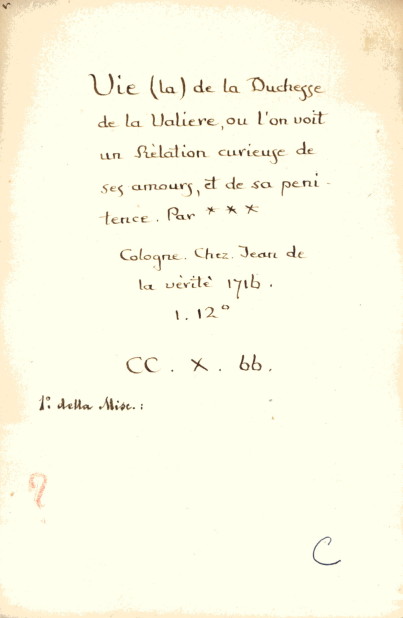 Vie (la) de la Duchesse
de la Valiere, ou l'on voit
un Rèlation curieuse de
ses amours, et de sa peni-
tence. Par ***
Cologne. Chez. Jean de
la vèritè 1716.
1. 12°
CC. X. 66.
1° della Misc.:
C